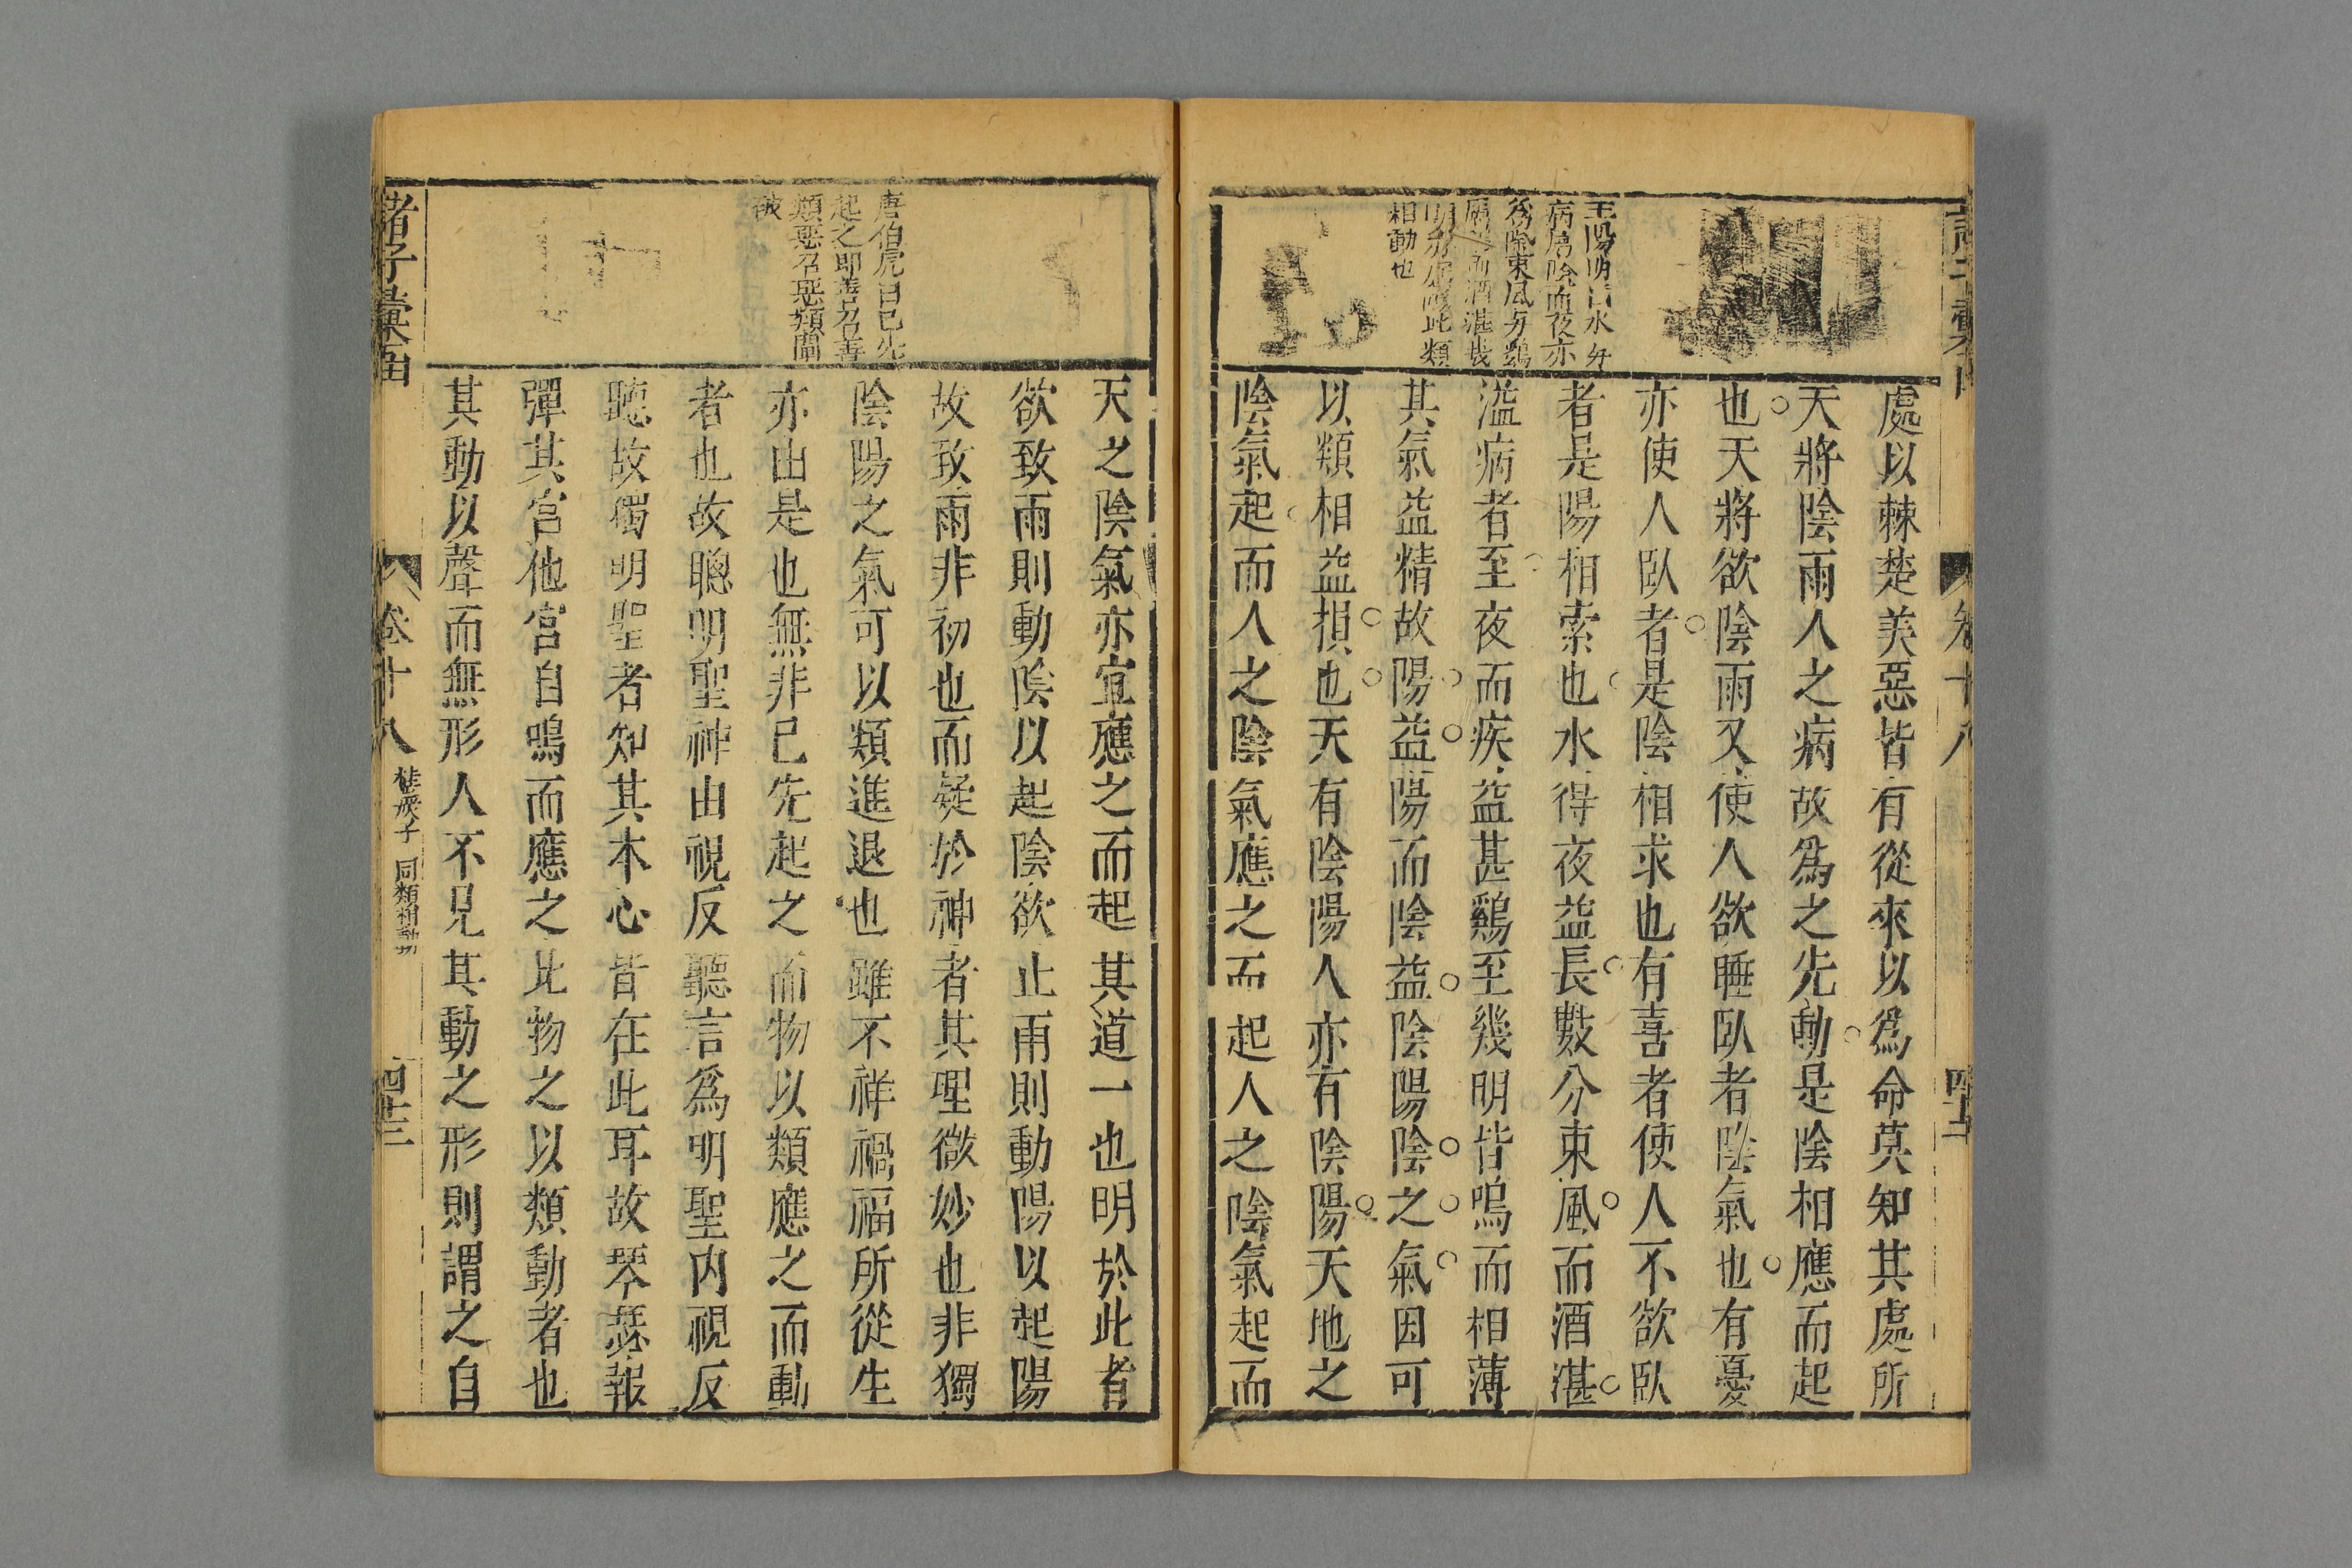 王陽明曰水夜
病屬陰而夜亦
後陰東風與鷄
相動也
處以棘楚美惡皆有從來以爲命莫知其處所
天將陰雨人之病故爲之先動是陰相應而起
也天將欲陰雨又使人欲睡臥者陰氣也有憂
亦使人臥者是陰相求也有喜者使人不欲臥
者是陽相索也水得夜益長數分東風而酒湛
溢病者至夜而疾益甚鷄至幾明皆鳴而相薄
其氣益精故陽益陽而陰益陰陽陰之氣因可
以類相益損也天有陰陽人亦有陰陽天地之
陰氣起而人之陰氣應之而起人之陰氣起而
唐伯虎曰已先
起之即善召善
類惡召惡類闡
破
天之陰氣亦宜應之而起其道一也明於此者
欲致雨則動陰以起陰欲止雨則動陽以起陽
故致雨非初也而疑於神者其理微妙也非獨
陰陽之氣可以類進退也雖不祥禍福所從生
亦由是也無非已先起之而物以類應之而動
者也故聰明聖神由視反聽言爲明聖內視反
聽故獨明聖者知其本心皆在此耳故琴瑟報
彈其宮他宮自鳴而應之此物之以類動者也
其動以聲而無形人不見其動之形則謂之自
諸子彙函
卷十八
桂巖子 同類相動
四十三